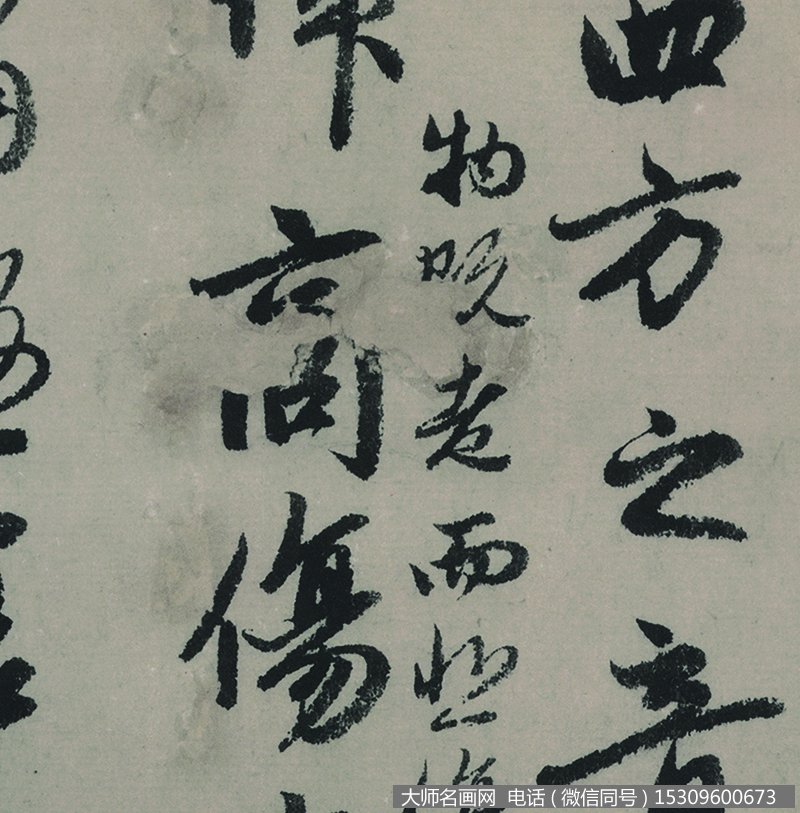 西方之音
物既老而悲
律商傷
大师名画网 电话（微信同号）15309600673